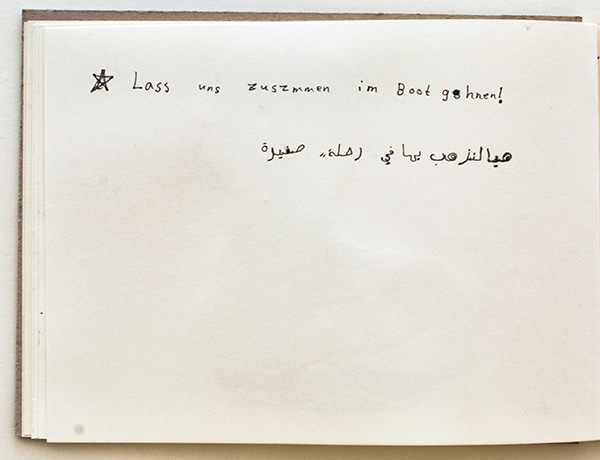 Lass uns zuszmmen im Boot gehnen!
هيا لنذهب بها في رحلة،، صغيرة